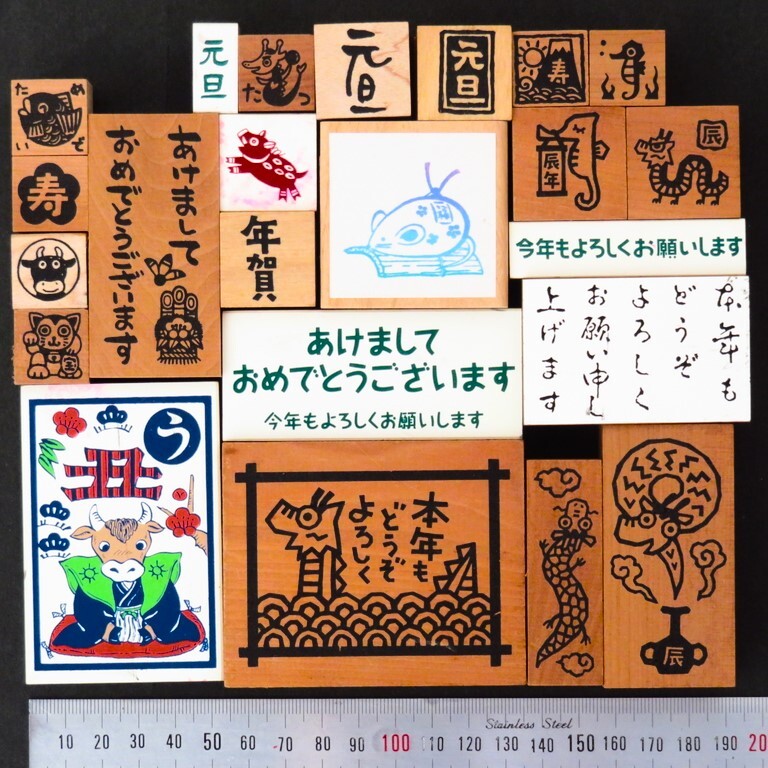 元旦
たつ
元旦
元旦
寿
めでたい
寿
あけまして
おめでとうございます
年賀
辰年
辰
今年もよろしくお願いします
本年も
どうぞ
よろしく
お願い申し
上げます
あけまして
おめでとうございます
今年もよろしくお願いします
う
丑
本年も
どうぞ
よろしく
辰
Stainless Steel
10 20 30 40 50 60 70 80 90 100 110 120 130 140 150 160 170 180 190 20